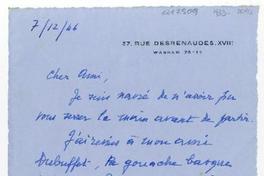 7/12/46
37, RUE DESRENAUDES. XVIIE
WAGRAM 75-11
Cher Ami,
Je suis navré de n'avoir pu
vous serrer la main avant de partir.
J'ai remis à mon ami
Dubuffet, la gouache